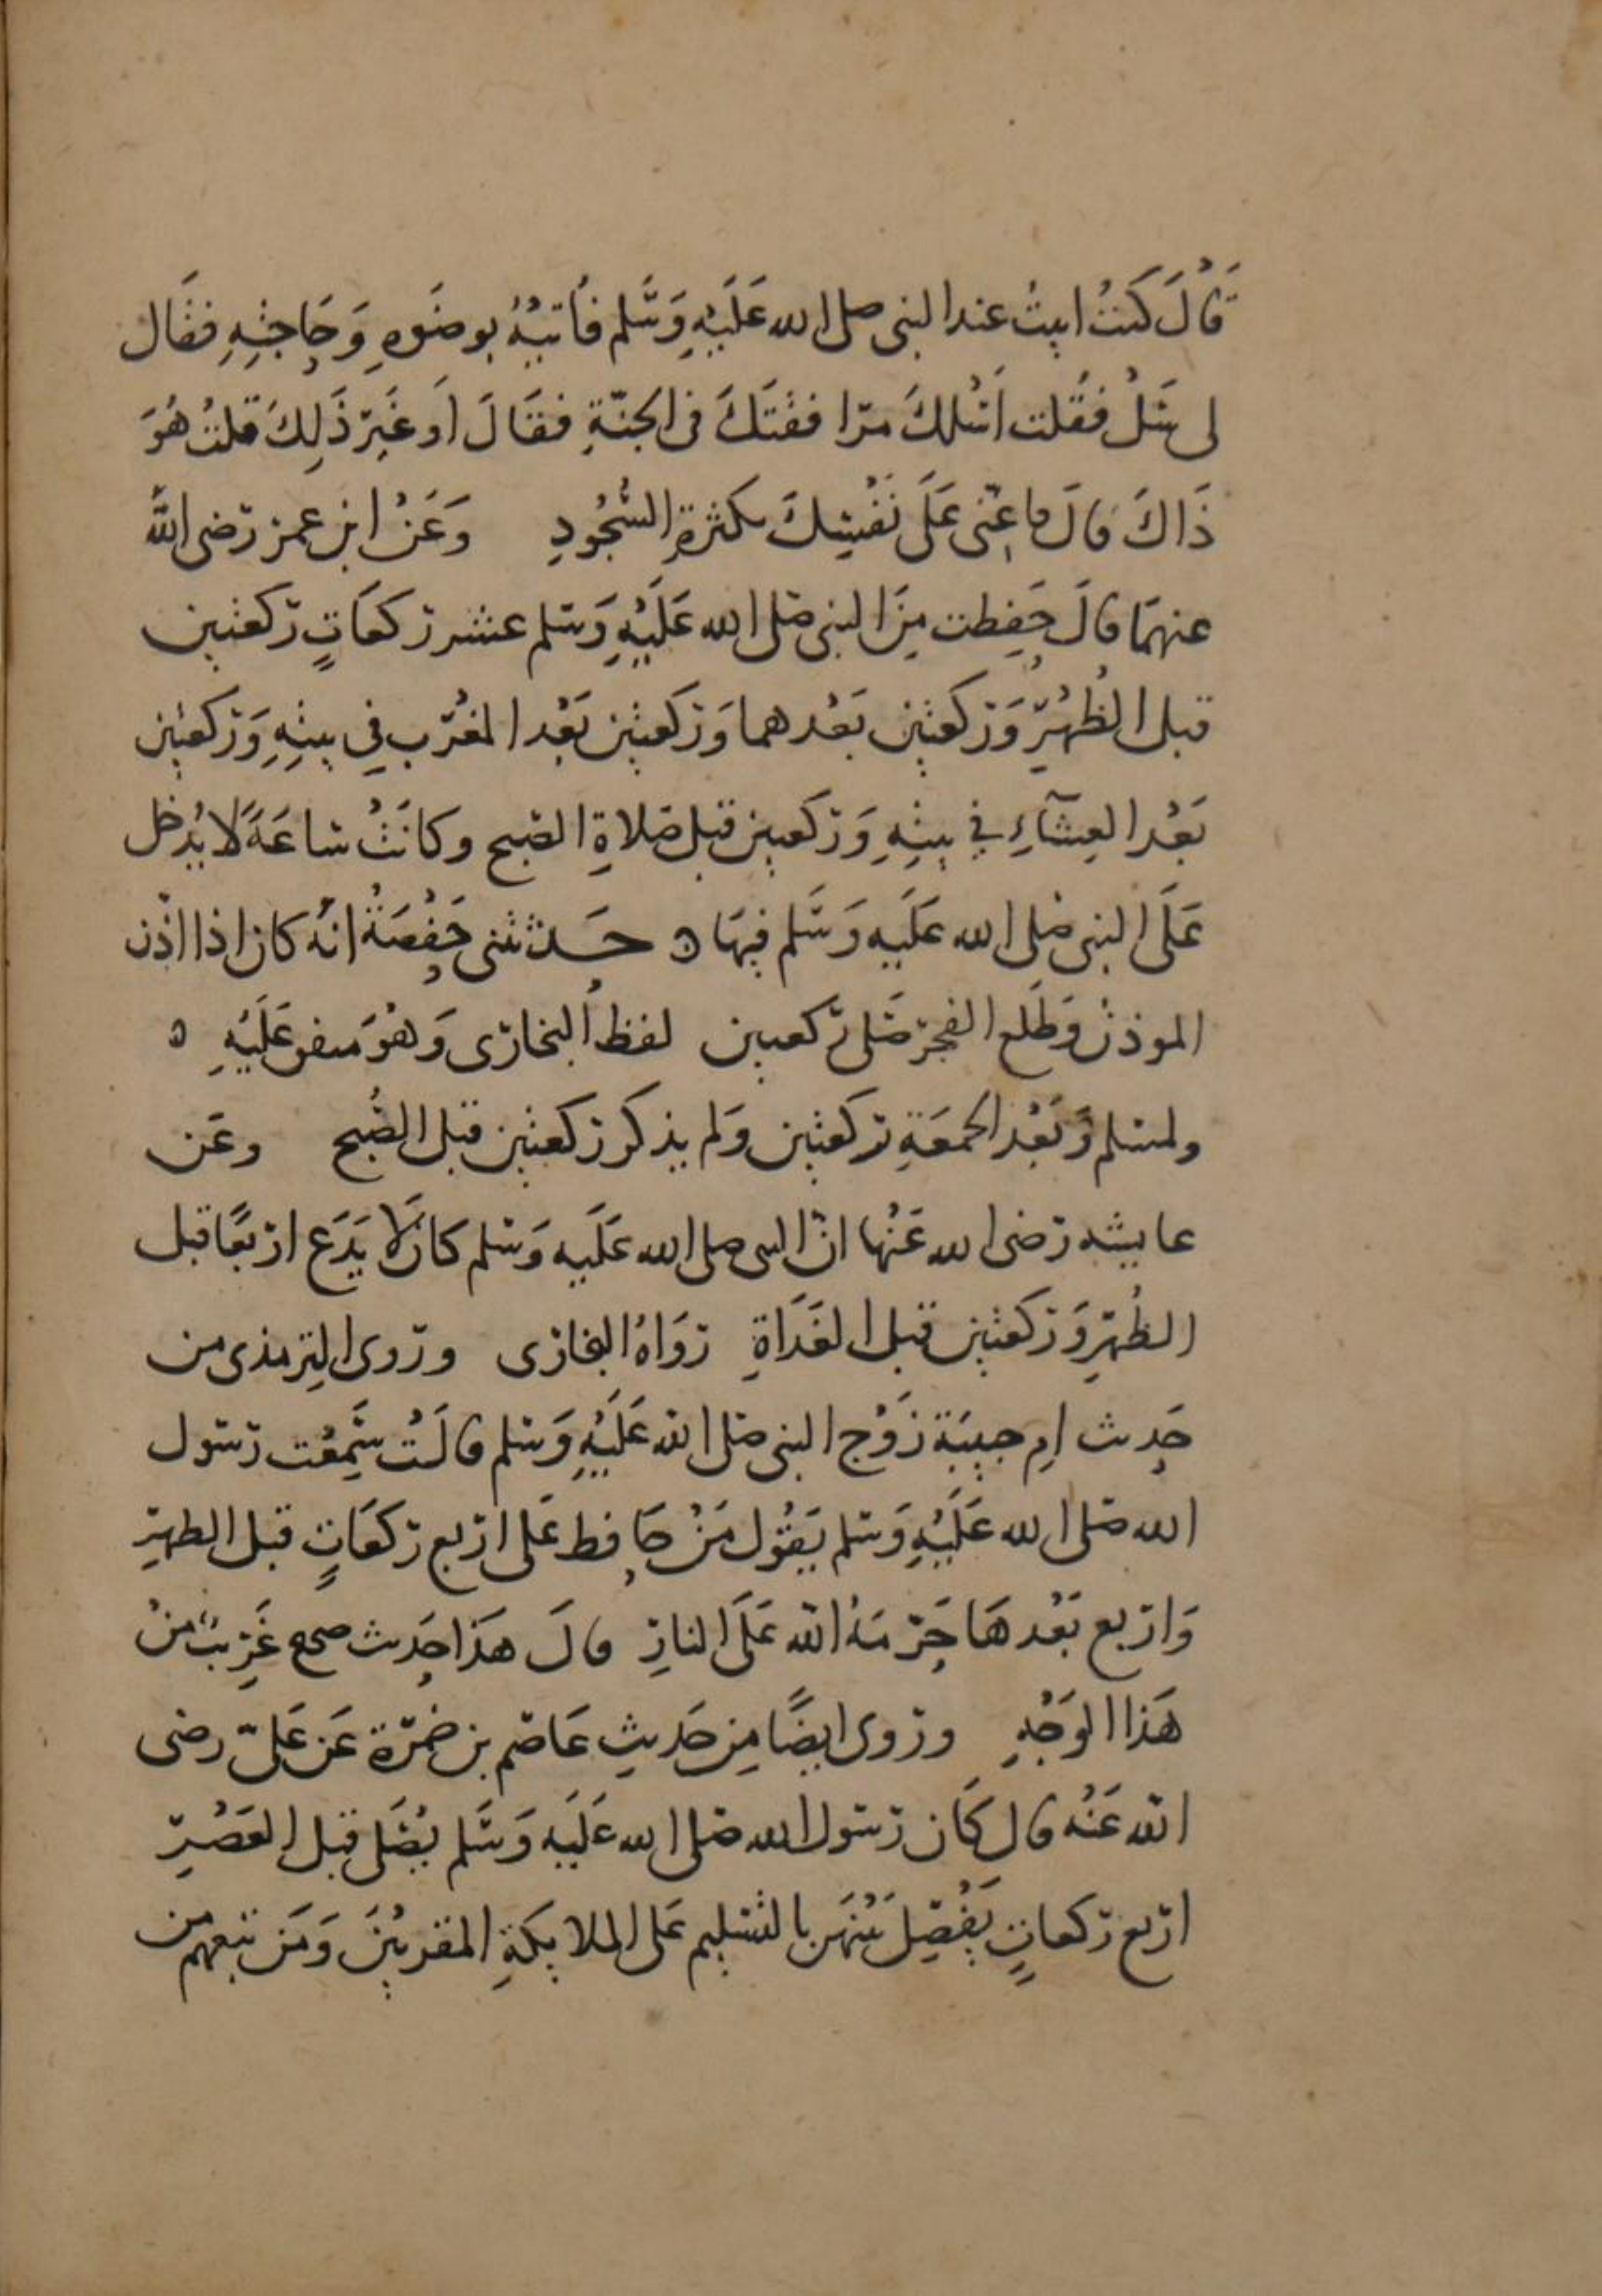 قَالَ كنتُ ابيتُ عند النبى صلى الله عَلَيْهِ وَسَّلم فاتيهُ بوضَوهِ وَحَاجتِهِ فقَال
لى سَلْ فقُلت اَسْلكَ مرافقتَكَ فى الجنّةِ فقَالَ اَوغَيرَ ذَلِكَ قلتُ هُوَ
ذَاكَ قالَ فاعِنّى عَلَى نَفْسِكَ بكثرةِ السُّجُودِ وَعَنْ ابن عمر رضى الله
عنهمَا قالَ حَفِظت مِنَ النبى صلى الله عَلَيْهِ وَسلم عشر ركعَاتٍ ركعتين
قبل الظُهْرِ وَركعتين بَعْدهما وَركعتين بَعْد المغْرب فِي بيتِهِ وَركعتين
بَعْد العِشَآءِ في بيتِهِ وَركعتين قبل صَلاةِ الصبح وكانَتْ ساعَةً لا يُدخل
عَلَى النبى صلى الله عَلَيه وَسَّلم فيهَا ه حَدثتنى حَفْصَةُ انهُ كان اذا اذّن
الموذنُ وَطَلع الفجر صَلى ركعتين لفظُ البخارى وَهُوَ متفق عَلَيْهِ ه
ولمسلم وَبَعْد الجمعَةِ ركعتين وَلم يذكر ركعتين قبل الصُبح وعَن
عايشه رضى الله عَنْها انّ النبى صلى الله عَلَيه وَسلم كَانَ لَا يَدَع اربعًا قبل
الظُهرِ وَركعتين قبل الغَدَاةِ رَوَاهُ البخارى وروى الترمذى من
حَدِيث امِ حبيبَة زَوْج النبى صلى الله عَلَيْهِ وَسلم قالَتْ سَمِعْت رسول
الله صلى الله عَلَيْهِ وَسلم يَقُول مَنْ حَافظ عَلى اربع ركعَاتٍ قبل الظهرِ
وَاربع بَعْدهَا حَرّمَهُ الله عَلَى النارِ قالَ هَذا حَدِيث صحيح غَرِيبٌ منْ
هَذا الوَجْهِ وروى ايضًا مِن حَديثِ عَاصم بن ضمْرة عَن عَلىّ رضى
الله عَنْه قال كَان رسُول الله صلى الله عَلَيه وَسَّلم يُصَلى قبل العَصْرِ
اربَع ركعاتٍ يَفْصِل بَيْنَهَن بالتسليم عَلى الملايكَةِ المقربيْنَ وَمَن تبعهم من